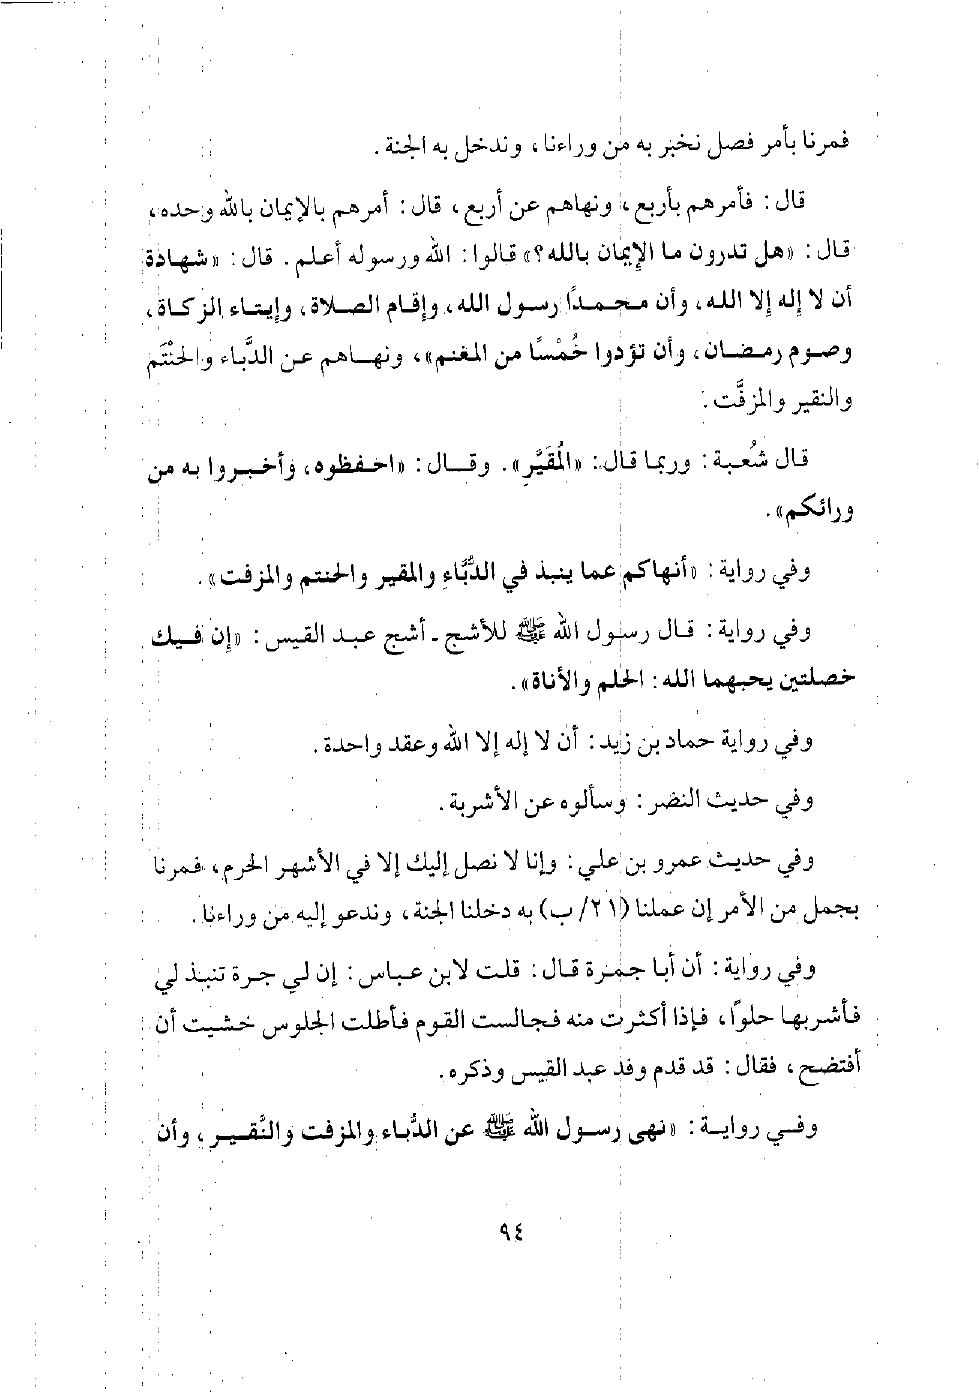 فمرنا بأمر فصل نخبر به من وراءنا، وندخل به الجنة.
قال: فأمرهم بأربع، ونهاهم عن أربع، قال: أمرهم بالإيمان بالله وحده،
قال: «هل تدرون ما الإيمان بالله؟» قالوا: الله ورسوله أعلم. قال: «شهادة
أن لا إله إلا الله، وأن محمدًا رسول الله، وإقام الصلاة، وإيتاء الزكاة،
وصوم رمضان، وأن تؤدوا خُمْسًا من المغنم»، ونهاهم عن الدَّباء والحنْتَم
والنقير والمزفَّت.
قال شُعبة: وربما قال: «المُقَيَّر». وقال: «احفظوه، وأخبروا به من
ورائكم».
وفي رواية: «أنهاكم عما ينبذ في الدُّبَّاءِ والمقير والحنتم والمزفت».
وفي رواية: قال رسول الله ﷺ للأشج ـ أشج عبد القيس: «إن فيك
خصلتين يحبهما الله: الحلم والأناة».
وفي رواية حماد بن زيد: أن لا إله إلا الله وعقد واحدة.
وفي حديث النضر: وسألوه عن الأشربة.
وفي حديث عمرو بن علي: وإنا لا نصل إليك إلا في الأشهر الحرم، فمرنا
بجمل من الأمر إن عملنا (٢١/ ب) به دخلنا الجنة، وندعو إليه من وراءنا.
وفي رواية: أن أبا جمرة قال: قلت لابن عباس: إن لي جرة تنبذ لي
فأشربها حلوًا، فإذا أكثرت منه فجالست القوم فأطلت الجلوس خشيت أن
أفتضح، فقال: قد قدم وفد عبد القيس وذكره.
وفي رواية: «نهى رسول الله ﷺ عن الدُّباء والمزفت والنَّقير، وأن
٩٤